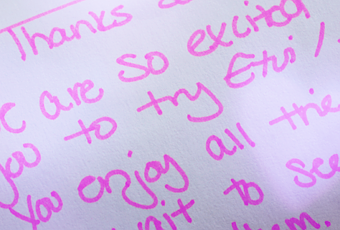 Thanks
are so excited
you to try Etvi /
you enjoy all the
to see
them.